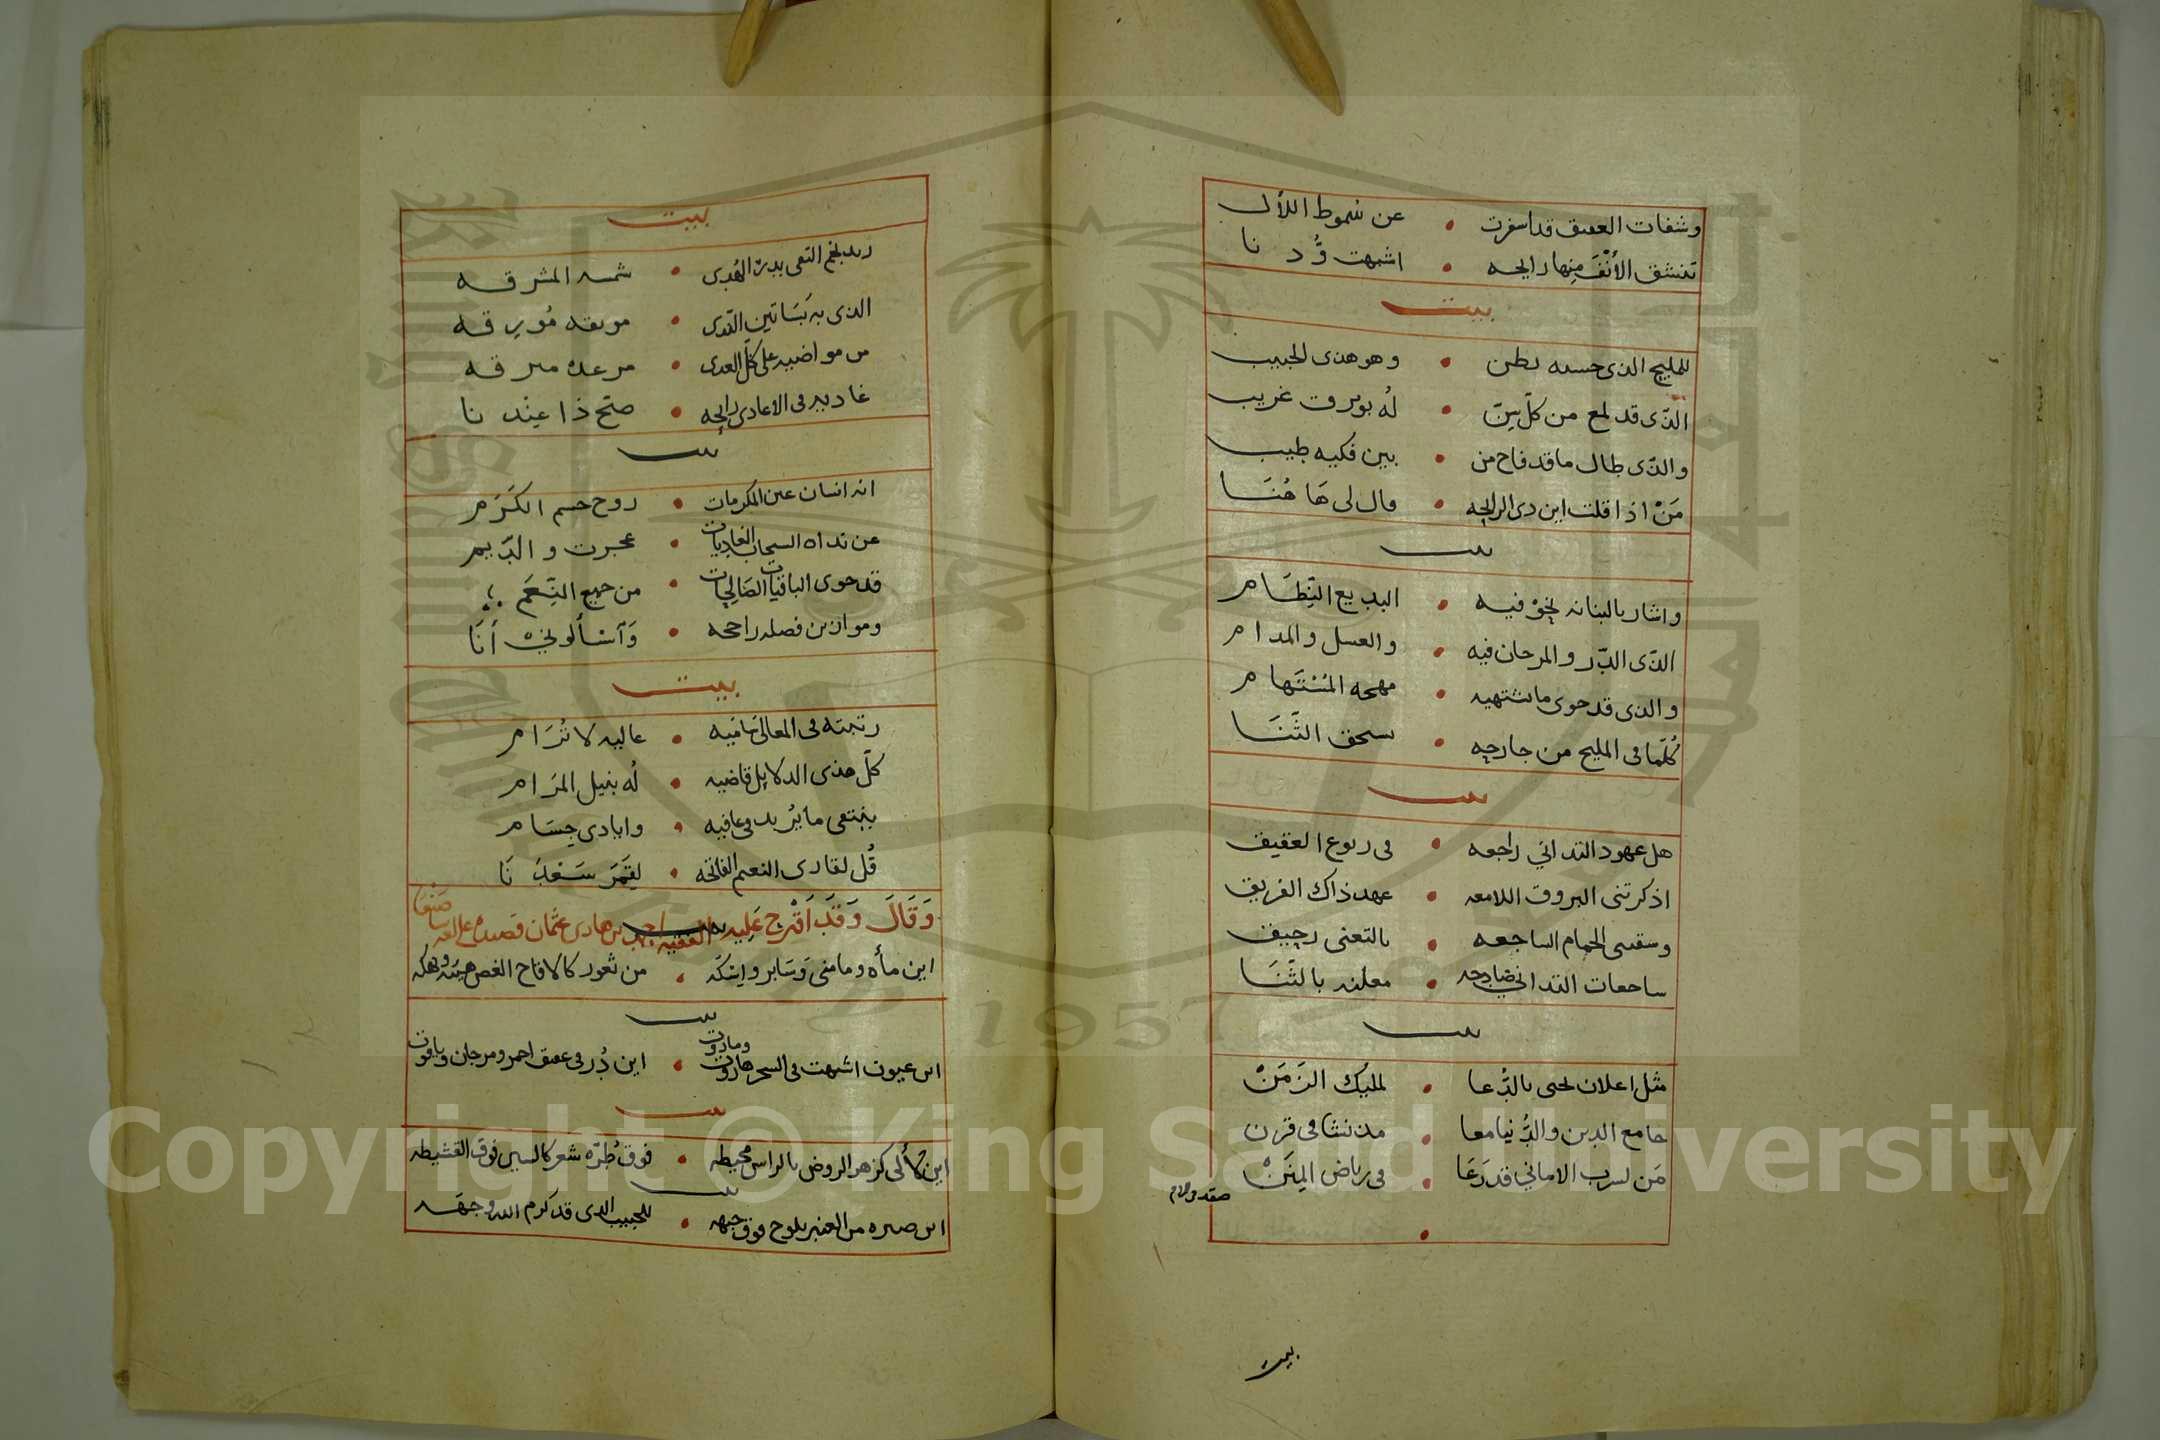 وشفات العقيق قد اسفرت • عن سموط اللأل
تنشق الأنف منها رايحه • اشبهت وُدنا
بيت
للمليح الذى حسنه بطن • وهو هذى الحبيب
الذى قد لمع من كلّ بين • لُه بروق غريب
والذى طال ما قد فاح من • بين فكيه طيب
مَنْ اذا قلت اين ذى الرايحه • قال لى هَا هُنَا
بيت
واشار بالبنانه نحوْ فيه • البديع النِّظَام
الذى الدّر والمرجان فيه • والعسل والمدام
والذى قد حوى ما تشتهيه • مهجه المُسْتَهام
كُلّما فى المليح من جارحه • يستحق الثَّنَا
بيت
هل عهود التداني راجعه • فى ربوع العقيق
اذكرتنى البروق اللامعه • عهد ذاك الفريق
الحمام الساجعه • بالتغنى رحيق
ساجعات التداني صادحه • معلنه بالثَّنَا
بيت
مثل اعلان لحنى بالدُّعا • لمليك الزَمَنْ
جامع الدين والدُّنيا معا • مذ نشا فى قرن
مَن لسرب الاماني قد رَعَا • فى رياض المِنَنْ
•
بيت
بيت
التقى بدر الهُدى • شمسه المشرقه
الذى به بَسَاتين النّدى • مونقه مُورقه
من مواضيه على كلّ العدى • مرعده مبرقه
غاديه فى الاعادى رايحه • صَحّ ذا عِنْدنا
بيت
انه انسان عين المكرمات • روح جسم الكَرَم
عن نداه السحاب الغاديات • عجزت والدّيم
قد حوى الباقيات الصَالحات • من جميع النِّعَم
وموازين فضله راجحه • وَآسْألوني أنَا
بيت
رتبته فى المعالى • عاليه لا تُرَام
كلّ هذى الدلايل قاضيه • لُه بنيل المرَام
يبتغى ما يُريد فى عافيه • وايادى جِسَام
قُل لقارى النعيم الفاتحه • لِقَمَرَ سَعْدنَا
وَقَالَ وَقَد اَقْترح عَليه الفقيه بن هادى عثمان قصيده على
اين مأه وما منى وَسَابر واِسْكَه • من ثغور كالاقاح الغض
بيت
اين عيون اشبهت فى السحر هاروت وماروت • اين دُر فى عقيق احمر ومرجان وياقوت
بيت
اين كزهر الروض بالراس محيطه • فوق طُرّه شعر فوق القشيطه
بيت
اين من العنبر يلوح فوق جبهه • للحبيب الذى قد كرم الله وجهَه
Copyright © King Saud University
1957